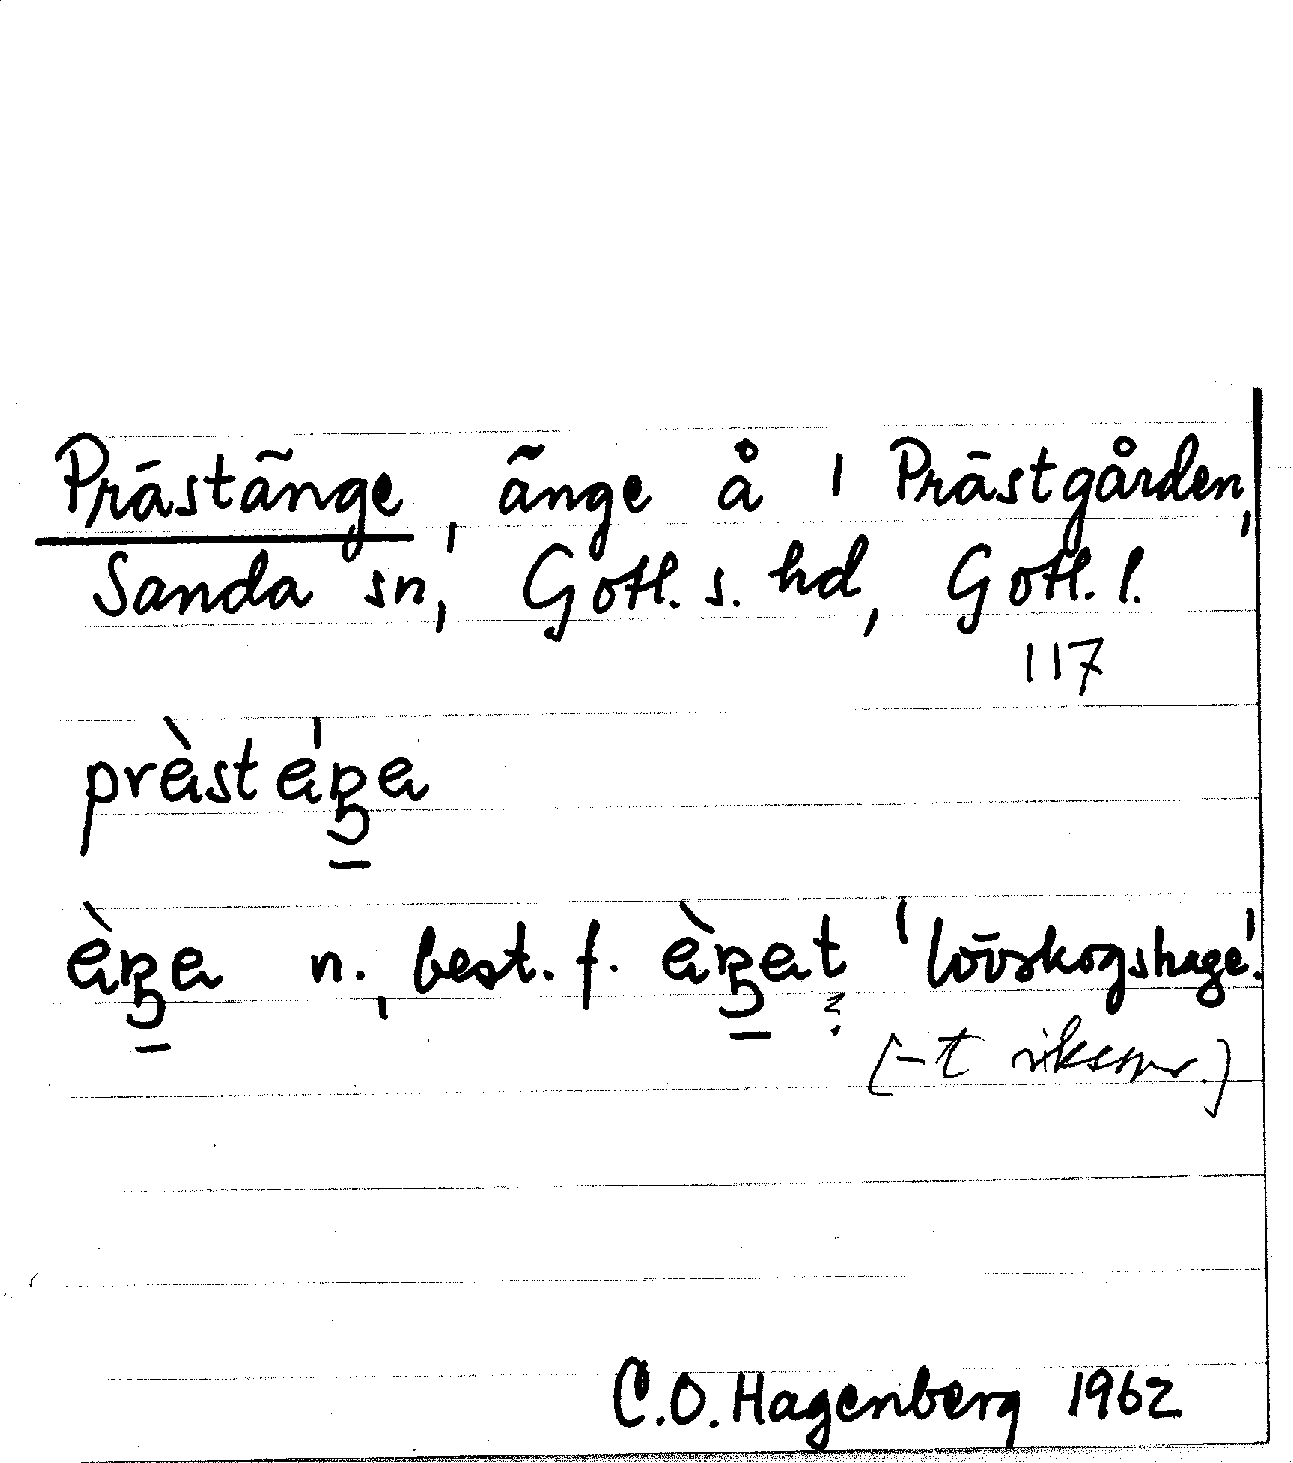 Prästänge, änge å 1 Prästgården,
Sanda sn, Gotl. s. hd, Gotl. l.
117
prèsteŋe
èŋe n., best. f. èŋet 'lövskogshage'.
?
[-t riksspr.]
C.O. Hagenberg 1962